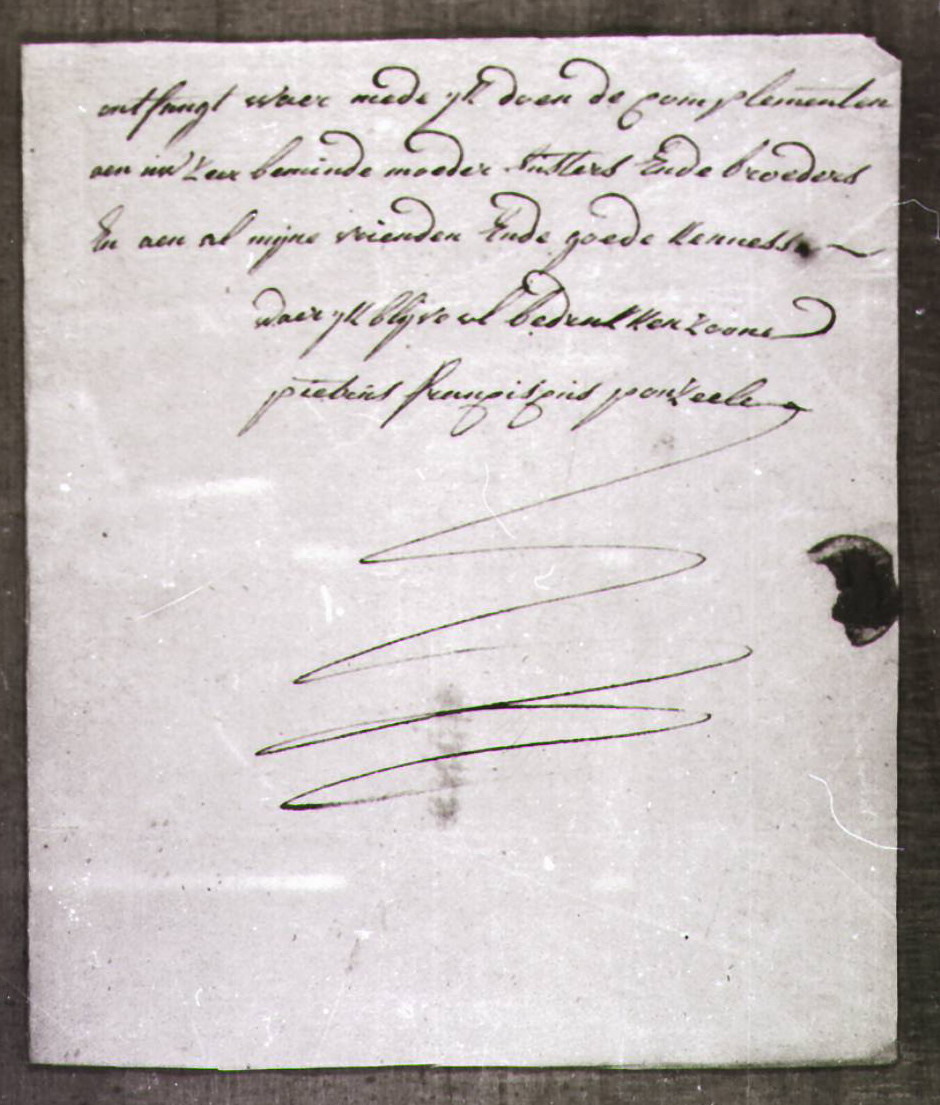 ontfangt waer mede yk doen de complementen
aen uw zeer beminde moeder susters Ende broeders
En aen al mijne vrienden Ende goede kenness
daer yk blijve ul bedrukken zoone
pieteris francisqis ponzeele